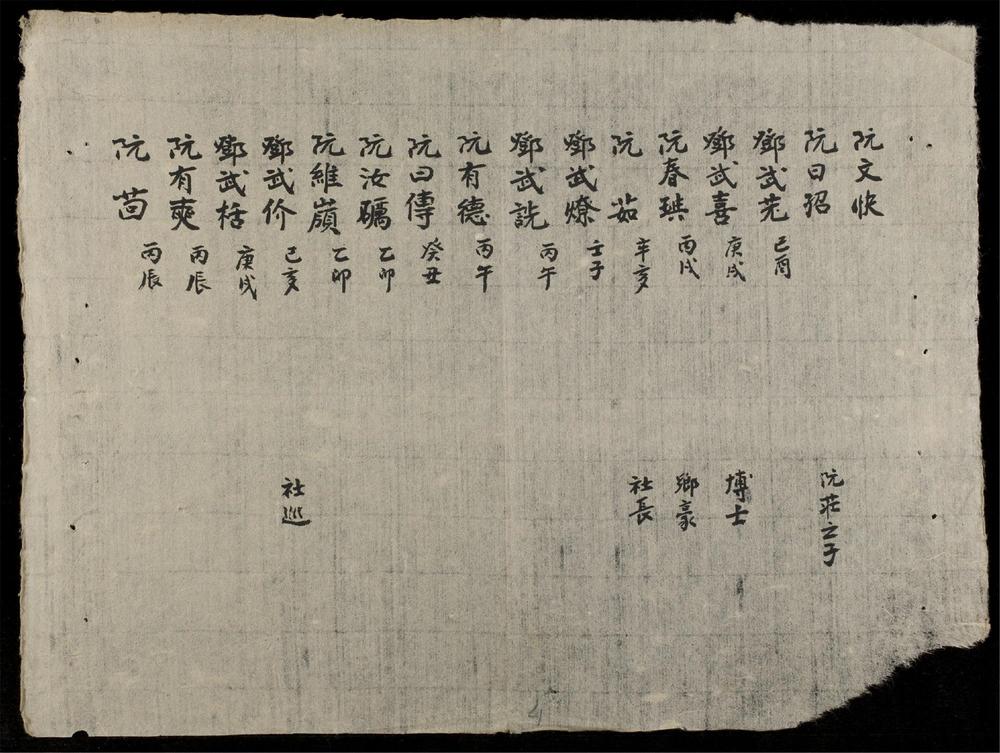 阮文快
阮曰招 阮莊之子
鄧武芫 己酉
鄧武喜 庚戌 博士
阮春琪 丙戌 鄉豪
阮茹 辛亥 社長
鄧武燎 壬子
鄧武詵 丙午
阮有德 丙午
阮曰傳 癸丑
阮汝礪 乙卯
阮維嶺 乙卯
鄧武价 己亥 社巡
鄧武栝 庚戌
阮有奭 丙辰
阮茴 丙辰